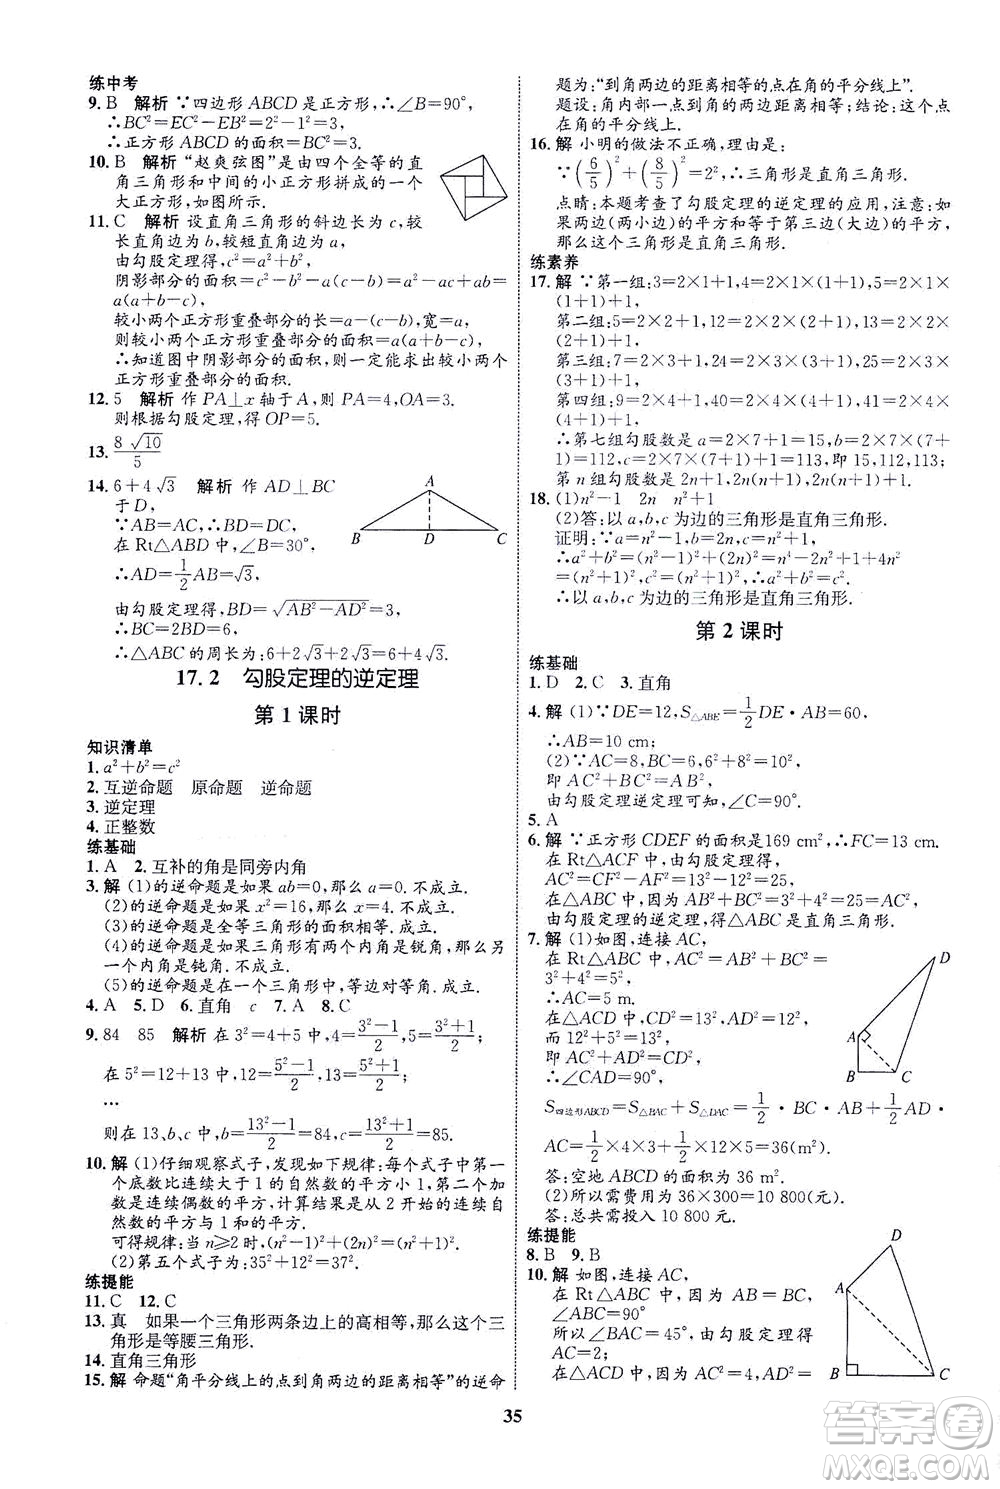 练中考
9. B 解析 ∵四边形 ABCD 是正方形,∴∠B=90°,
∴BC²=EC²-EB²=2²-1²=3,
∴正方形 ABCD 的面积=BC²=3.
10. B 解析 “赵爽弦图”是由四个全等的直
角三角形和中间的小正方形拼成的一个
大正方形,如图所示.
11. C 解析 设直角三角形的斜边长为 c,较
长直角边为 b,较短直角边为 a,
由勾股定理得,c²=a²+b²,
阴影部分的面积=c²-b²-a(c-b)=a²-ac+ab=
a(a+b-c),
较小两个正方形重叠部分的长=a-(c-b),宽=a,
则较小两个正方形重叠部分的面积=a(a+b-c),
∴知道图中阴影部分的面积,则一定能求出较小两个
正方形重叠部分的面积.
12. 5 解析 作 PA⊥x 轴于 A,则 PA=4,OA=3.
则根据勾股定理,得 OP=5.
13. 8√10/5
14. 6+4√3 解析 作 AD⊥BC
于 D,
∵AB=AC,∴BD=DC,
在 Rt△ABD 中,∠B=30°,
∴AD=1/2AB=√3,
由勾股定理得,BD=√(AB²-AD²)=3,
∴BC=2BD=6,
∴△ABC 的周长为:6+2√3+2√3=6+4√3.
A
B D C
17.2 勾股定理的逆定理
第 1 课时
知识清单
1. a²+b²=c²
2. 互逆命题 原命题 逆命题
3. 逆定理
4. 正整数
练基础
1. A 2. 互补的角是同旁内角
3. 解 (1)的逆命题是如果 ab=0,那么 a=0.不成立.
(2)的逆命题是如果 x²=16,那么 x=4.不成立.
(3)的逆命题是全等三角形的面积相等.成立.
(4)的逆命题是如果三角形有两个内角是锐角,那么另
一个内角是钝角.不成立.
(5)的逆命题是在一个三角形中,等边对等角.成立.
4. A 5. D 6. 直角 c 7. A 8. C
9. 84 85 解析 在 3²=4+5 中,4=(3²-1)/2,5=(3²+1)/2;
在 5²=12+13 中,12=(5²-1)/2,13=(5²+1)/2;
…
则在 13、b、c 中,b=(13²-1)/2=84,c=(13²+1)/2=85.
10. 解 (1)仔细观察式子,发现如下规律:每个式子的第一
个底数比连续大于 1 的自然数的平方小 1,第二个加
数是连续偶数的平方,计算结果是从 2 开始的连续自
然数的平方与 1 的和的平方.
可得规律:当 n≥2 时,(n²-1)²+(2n)²=(n²+1)².
(2)第五个式子为:35²+12²=37².
练提能
11. C 12. C
13. 真 如果一个三角形两条边上的高相等,那么这个三
角形是等腰三角形.
14. 直角三角形
15. 解 命题“角平分线上的点到角两边的距离相等”的逆命
题为:“到角两边的距离相等的点在角的平分线上”.
题设:角内部一点到角的两边距离相等;结论:这个点
在角的平分线上.
16. 解 小明的做法不正确,理由是:
∵(6/5)²+(8/5)²=2²,∴三角形为直角三角形.
点睛:本题考查了勾股定理的逆定理的应用,注意:如
果两边(两小边)的平方和等于第三边(大边)的平方,
那么这个三角形是直角三角形.
练素养
17. 解 ∵第一组:3=2×1+1,4=2×1×(1+1),5=2×1×
(1+1)+1,
第二组:5=2×2+1,12=2×2×(2+1),13=2×2×
(2+1)+1,
第三组:7=2×3+1,24=2×3×(3+1),25=2×3×
(3+1)+1,
第四组:9=2×4+1,40=2×4×(4+1),41=2×4×
(4+1)+1,
∴第七组勾股数是 a=2×7+1=15,b=2×7×(7+
1)=112,c=2×7×(7+1)+1=113,即 15,112,113.
第 n 组勾股数是 2n+1,2n(n+1),2n(n+1)+1.
18. (1)n²-1 2n n²+1
(2)答:以 a,b,c 为边的三角形是直角三角形.
证明:∵a=n²-1,b=2n,c=n²+1,
∴a²+b²=(n²-1)²+(2n)²=n⁴-2n²+1+4n²=
(n²+1)²,c²=(n²+1)²,∴a²+b²=c².
∴以 a,b,c 为边的三角形是直角三角形.
第 2 课时
练基础
1. D 2. C 3. 直角
4. 解 (1)∵DE=12,S△ABE=1/2DE·AB=60,
∴AB=10 cm;
(2)∵AC=8,BC=6,6²+8²=10²,
即 AC²+BC²=AB²,
由勾股定理逆定理可知,∠C=90°.
5. A
6. 解 ∵正方形 CDEF 的面积是169 cm²,∴FC=13 cm.
在 Rt△ACF 中,由勾股定理得,
AC²=CF²-AF²=13²-12²=25.
在△ABC 中,因为 AB²+BC²=3²+4²=25=AC²,
由勾股定理的逆定理,得△ABC 是直角三角形.
7. 解 (1)如图,连接 AC,
在 Rt△ABC 中,AC²=AB²+BC²=
3²+4²=5²,
∴AC=5 m.
在△DAC 中,CD²=13²,AD²=12²,
而 12²+5²=13²,
即 AC²+AD²=CD²,
∴∠CAD=90°,
S四边形ABCD=S△BAC+S△DAC=1/2·BC·AB+1/2AD·
AC=1/2×4×3+1/2×12×5=36(m²).
答:空地 ABCD 的面积为 36 m².
(2)所以需费用为 36×300=10 800(元).
答:总共需投入 10 800 元.
D
A
B C
练提能
8. B 9. B
10. 解 如图,连接 AC,
在 Rt△ABC 中,∵AB=BC=√2,
∠ABC=90°
∴∠BAC=45°,由勾股定理得:
AC=2;
在△ADC 中,因为 AC²=4,CD²
D
A
B C
35
答案卷
MXQE.COM